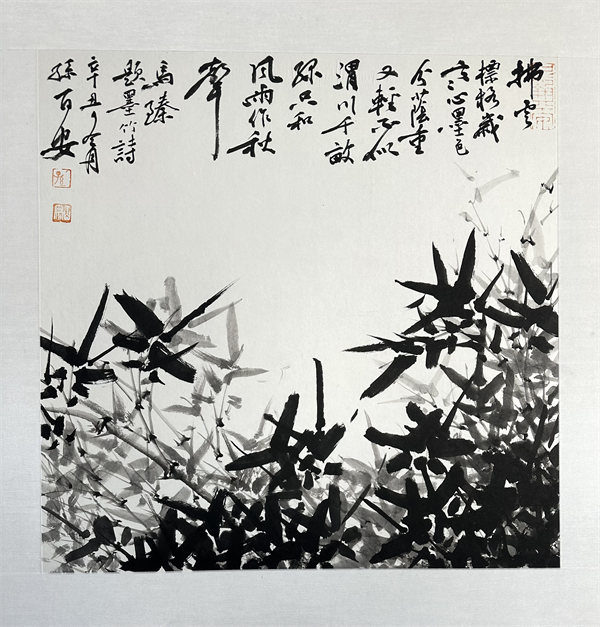 拂雲
標格歲
寒心墨色
分蔭重
又輕不似
渭川千畝
綠只和
風雨作秋
聲
馬臻
題墨竹詩
辛丑冬月
孫百安